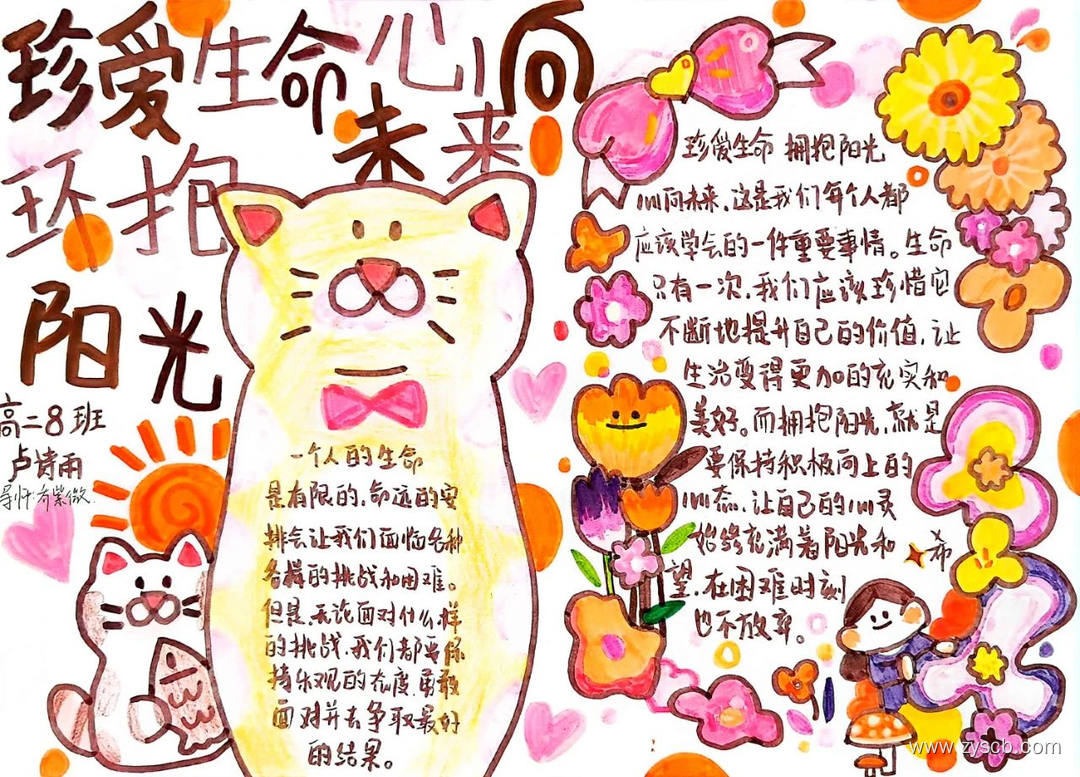 珍爱生命心向
未来
环抱
阳光
高二8班
卢诗雨
一个人的生命
是有限的，命运的安
排会让我们面临各种
各样的挑战和困难。
但是，无论面对什么样
的挑战，我们都要保
持乐观的态度，勇敢
面对并去争取最好
的结果。
珍爱生命 拥抱阳光
心向未来，这是我们每个人都
应该学会的一件重要事情。生命
只有一次，我们应该珍惜它
不断地提升自己的价值，让
生活变得更加的充实和
美好。而拥抱阳光，就是
要保持积极向上的
心态，让自己的心灵
始终充满着阳光和 希
望，在困难时刻
也不放弃。
www.zyscb.com